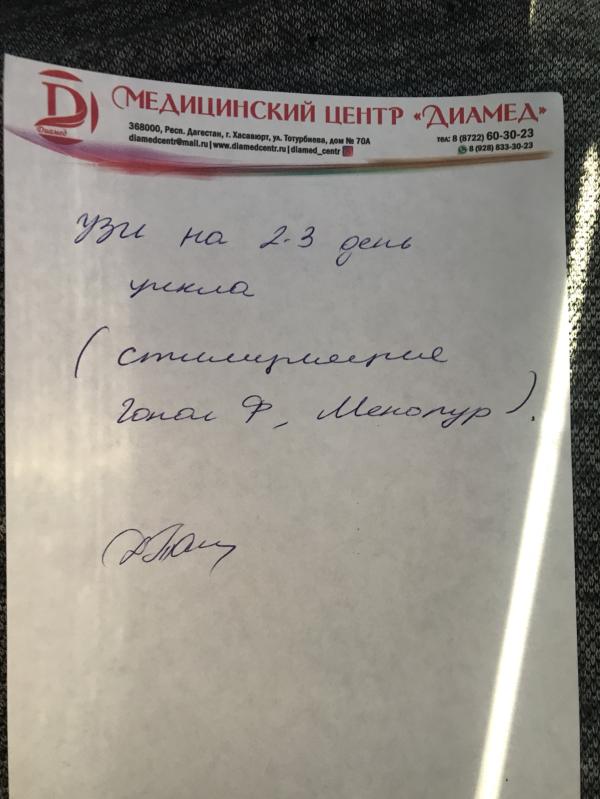 Диамед
МЕДИЦИНСКИЙ ЦЕНТР «ДИАМЕД»
368000, Респ. Дагестан, г. Хасавюрт, ул. Тотурбиева, дом № 70А
diamedcentr@mail.ru | www.diamedcentr.ru | diamed_centr
тел: 8 (8722) 60-30-23
8 (928) 833-30-23
УЗИ на 2-3 день
цикла
(стимуляция
Гонал Ф, Менопур).